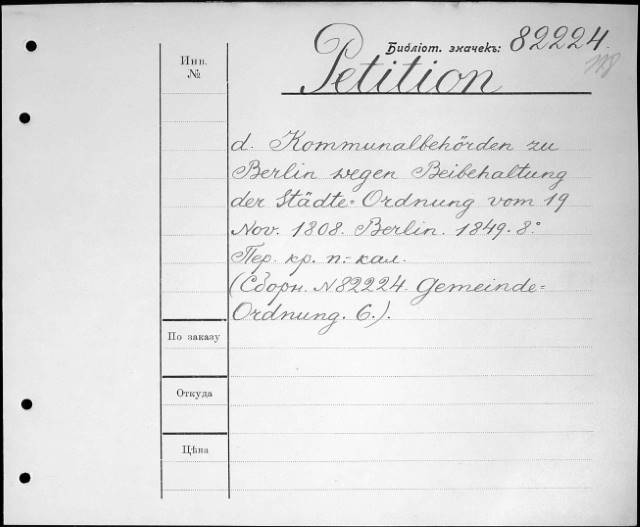 Библіот. значекъ: 82224.
Инв.
№
Petition
d. Kommunalbehörden zu
Berlin wegen Beibehaltung
der Städte=Ordnung vom 19
Nov. 1808. Berlin. 1849. 8°
Пер. кр. п.-кал.
(Сборн. N 82224. Gemeinde=
Ordnung. 6.).
По заказу
Откуда
Цѣна